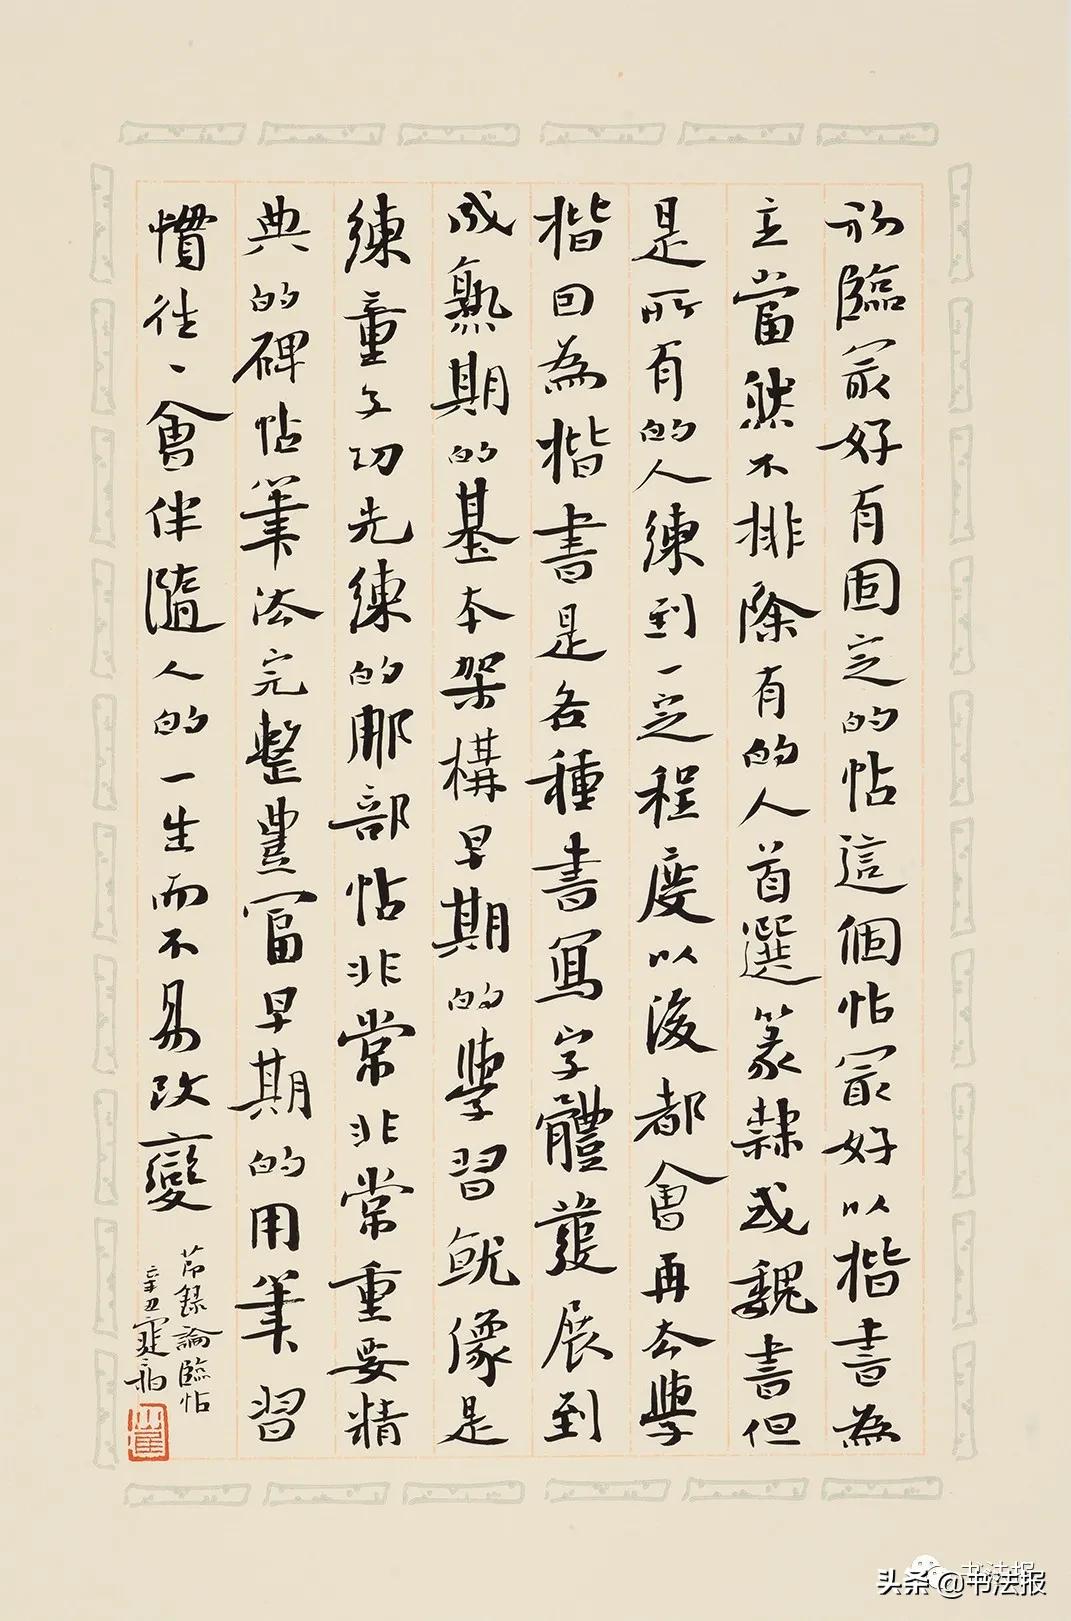 初臨冣好有固定的帖這個帖冣好以楷書為
主當然不排除有的人首選篆隸或魏書但
是所有的人練到一定程度以後都會再去學
楷回為楷書是各種書寫字體發展到
成熟期的基本架構早期的學習就像是
練童子功先練的那部帖非常非常重要精
典的碑帖筆法完整豐富早期的用筆習
慣往、會伴隨人的一生而不易改變
節錄論臨帖
辛丑
头条@书法报
书法报